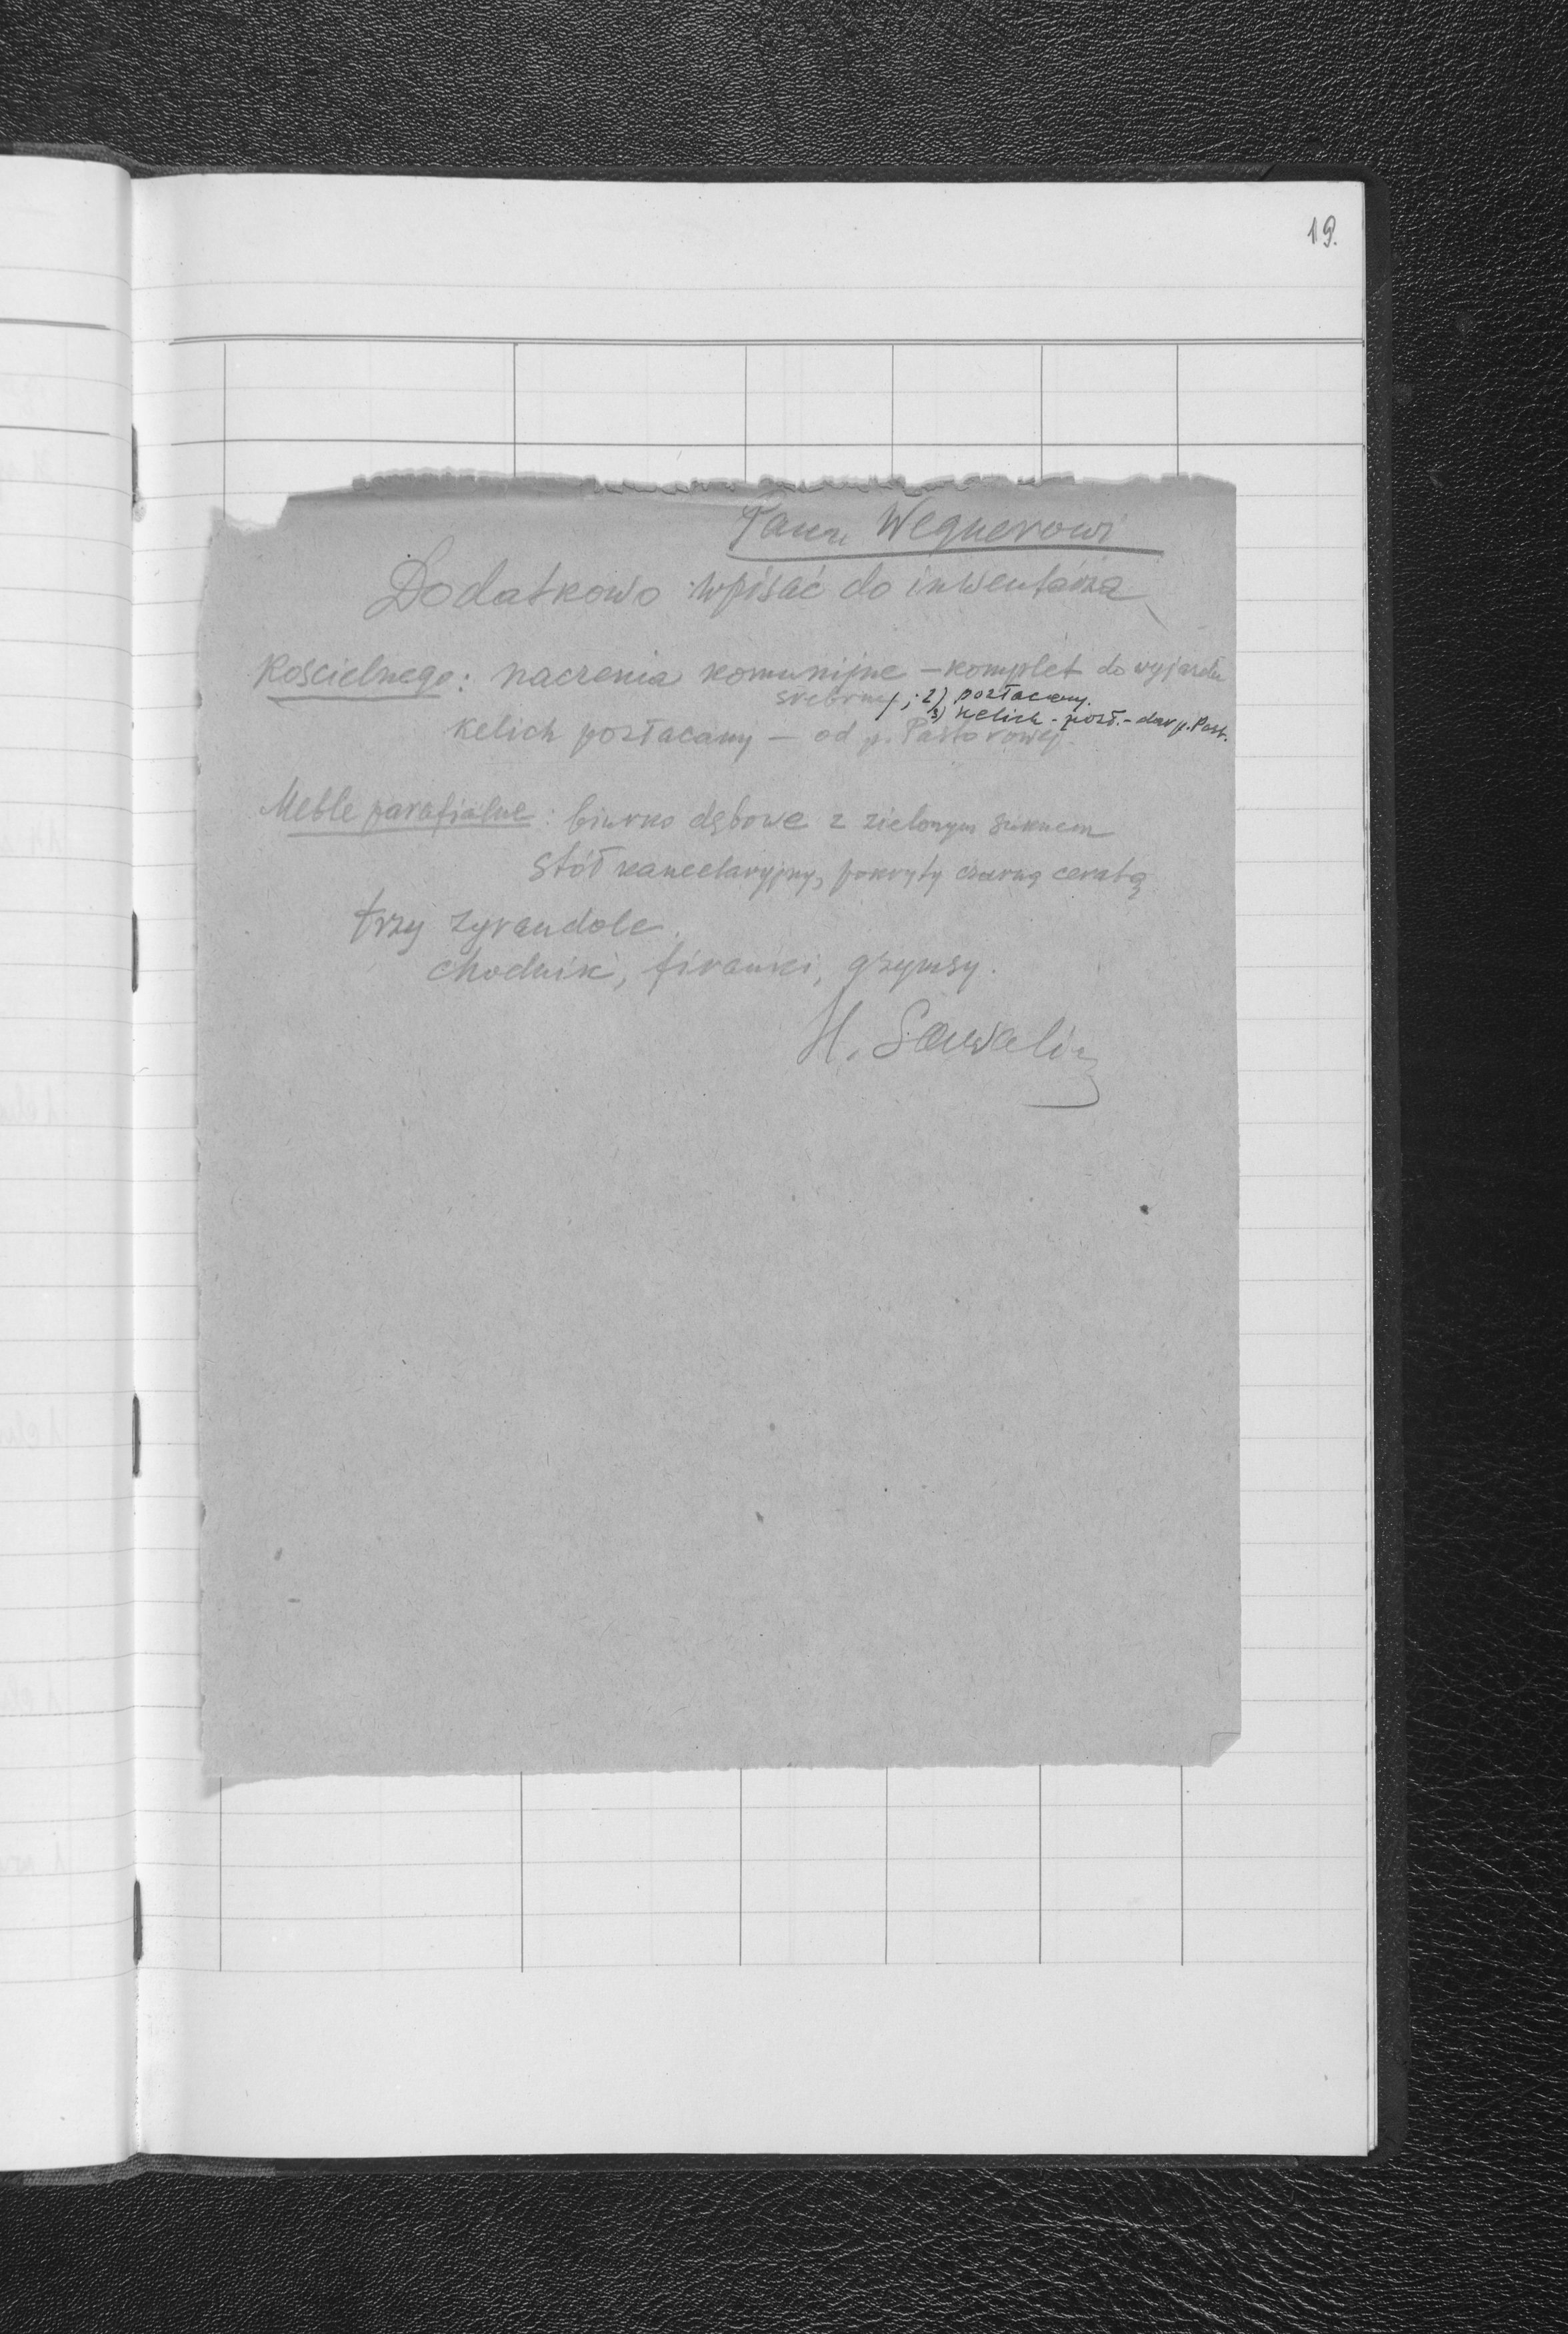 19.
Panu Wegnerowi
Dodatkowo wpisać do inwentarza
Kościelnego: naczenia komunijne – komplet do wyjazdu
srebrny ; 2) pozłacany.
3) kelich - pozł. - dar p. Past.
kelich pozłacany — od p. Pastorowej.
Meble parafialne: biurko dębowe z zielonym suknem
stół kancelaryjny, pokryty czarną ceratą
trzy zyrandole.
chodniki, firanki, gzymsy.
H.